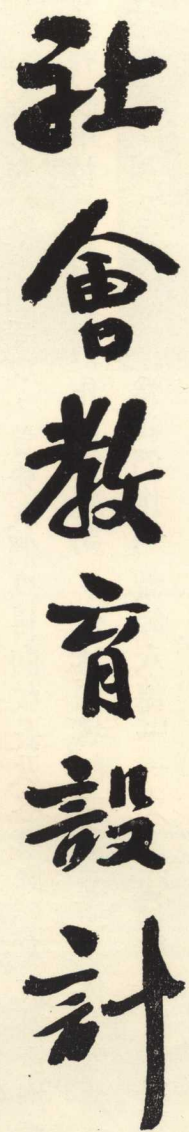 社會教育設計